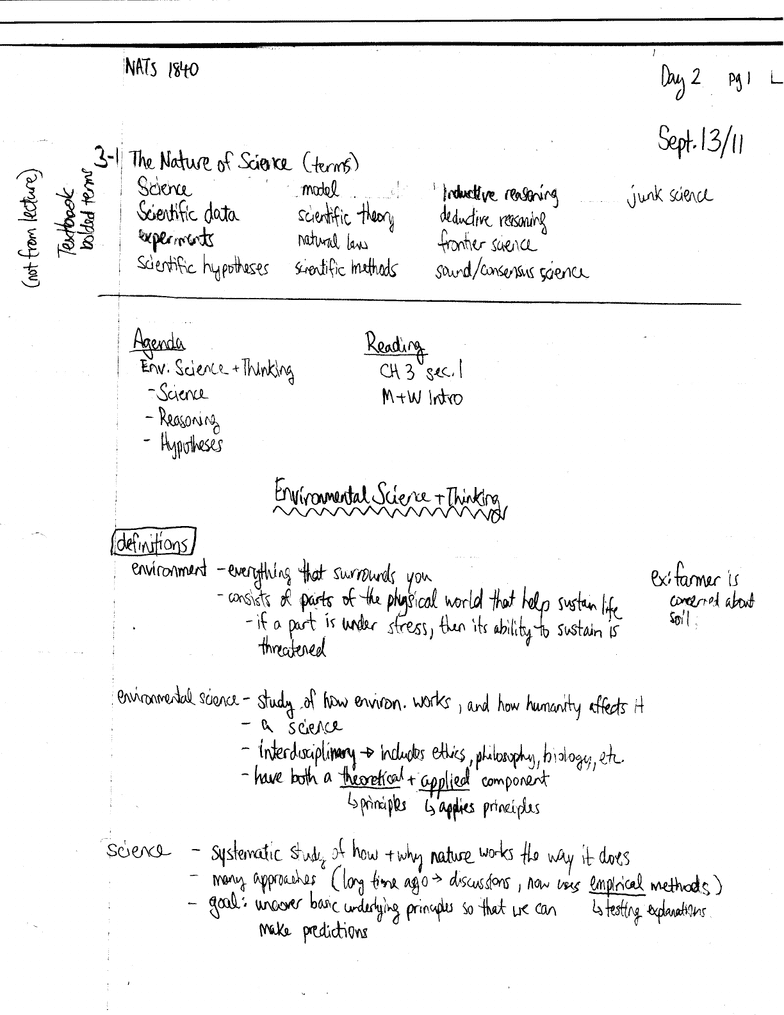 NATS 1840
Day 2 pg 1 L
Sept. 13/11
(not from lecture)
Textbook
bolded terms
3-1 The Nature of Science (terms)
Science model Inductive reasoning junk science
Scientific data scientific theory deductive reasoning
experiments natural law frontier science
Scientific hypotheses scientific methods sound/consensus science
Agenda Reading
Env. Science + Thinking CH 3 sec. 1
- Science M+W Intro
- Reasoning
- Hypotheses
Environmental Science + Thinking
definitions
environment - everything that surrounds you ex: farmer is
- consists of parts of the physical world that help sustain life concerned about
- if a part is under stress, then its ability to sustain is soil
threatened
environmental science - study of how environ. works, and how humanity affects it
- a science
- interdisciplinary → includes ethics, philosophy, biology, etc.
- have both a theoretical + applied component
↳ principles ↳ applies principles
science - systematic study of how + why nature works the way it does
- many approaches (long time ago → discussions, now uses empirical methods)
- goal: uncover basic underlying principles so that we can ↳ testing explanations
make predictions